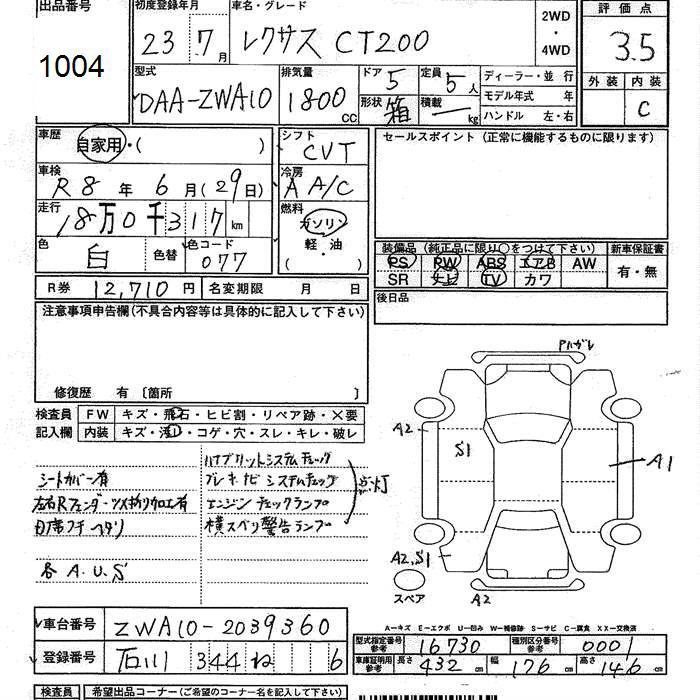 出品番号
1004
初度登録年月
23 7月
車名・グレード
レクサス CT200
2WD
・
4WD
評価点
3.5
外装 内装
C
型式
DAA-ZWA10
排気量
1800 CC
ドア 5
定員 5人
形状 箱
積載 ー kg
ディーラー・並行
モデル年式 年
ハンドル 左・右
車歴
自家用・( )
シフト
CVT
セールスポイント (正常に機能するものに限ります)
車検
R8年 6月(29日)
冷房
A A/C
走行
18万0千317km
燃料
ガソリン
軽・油
( )
色
白
色替
色コード
077
装備品 (純正品に限り○をつけて下さい)
PS PW ABS エアB AW
SR ナビ TV カワ
新車保証書
有・無
R券 12,710円
名変期限 月 日
後日品
注意事項申告欄(不具合内容等は具体的に記入して下さい)
修復歴 有 〔箇所 〕
検査員
記入欄
FW キズ・飛石・ヒビ割・リペア跡・×要
内装 キズ・汚レ・コゲ・穴・スレ・キレ・破レ
シートカバー有
左右Rフェンダーツメ折り加工有
各A.U.S
ハイブリットシステムチェック
エンジンチェックランプ
横スベリ警告ランプ
点灯
A2
S1
A1
A2,S1
スペア
A2
A-キズ E-エクボ U-凹み W-補修跡 S-サビ C-腐食 XX-交換済
車台番号
ZWA10-2039360
登録番号
石川 344 ね 6
型式指定番号
参考
16730
種別区分番号
参考
0001
車庫証明用
参考
長さ 432 cm
幅 176 cm
高さ 146 cm
検査員
希望出品コーナー(ご希望のコーナー名を記入して下さい)